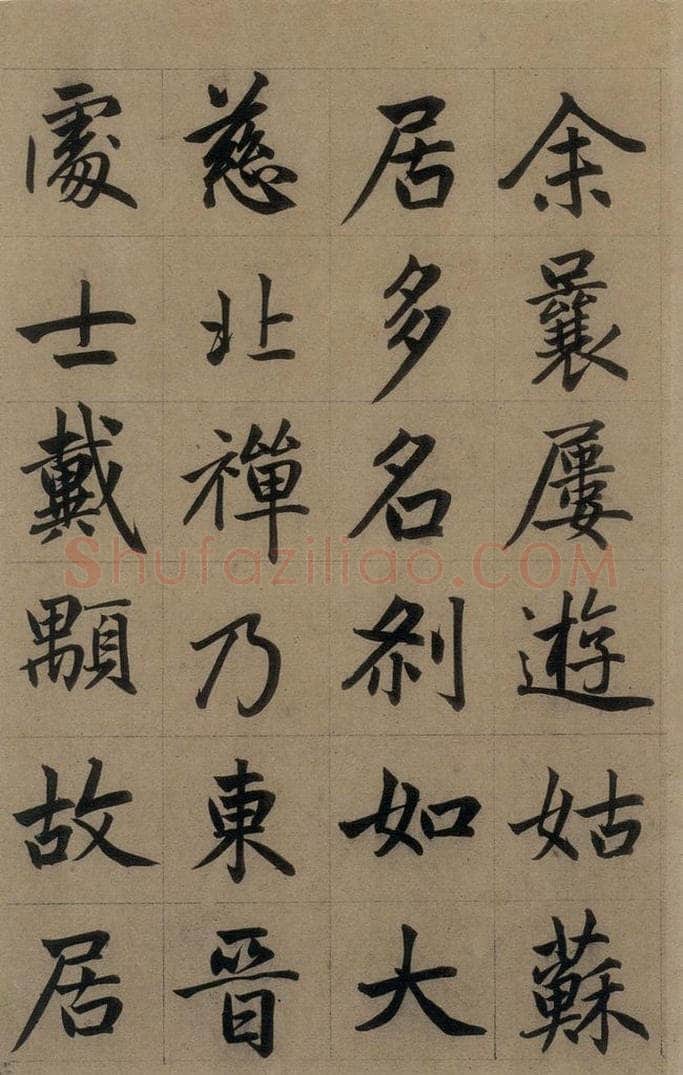 余曩屢遊姑蘇
居多名刹如大
慈北禪乃東晉
處士戴顒故居
Shufaziliao.COM